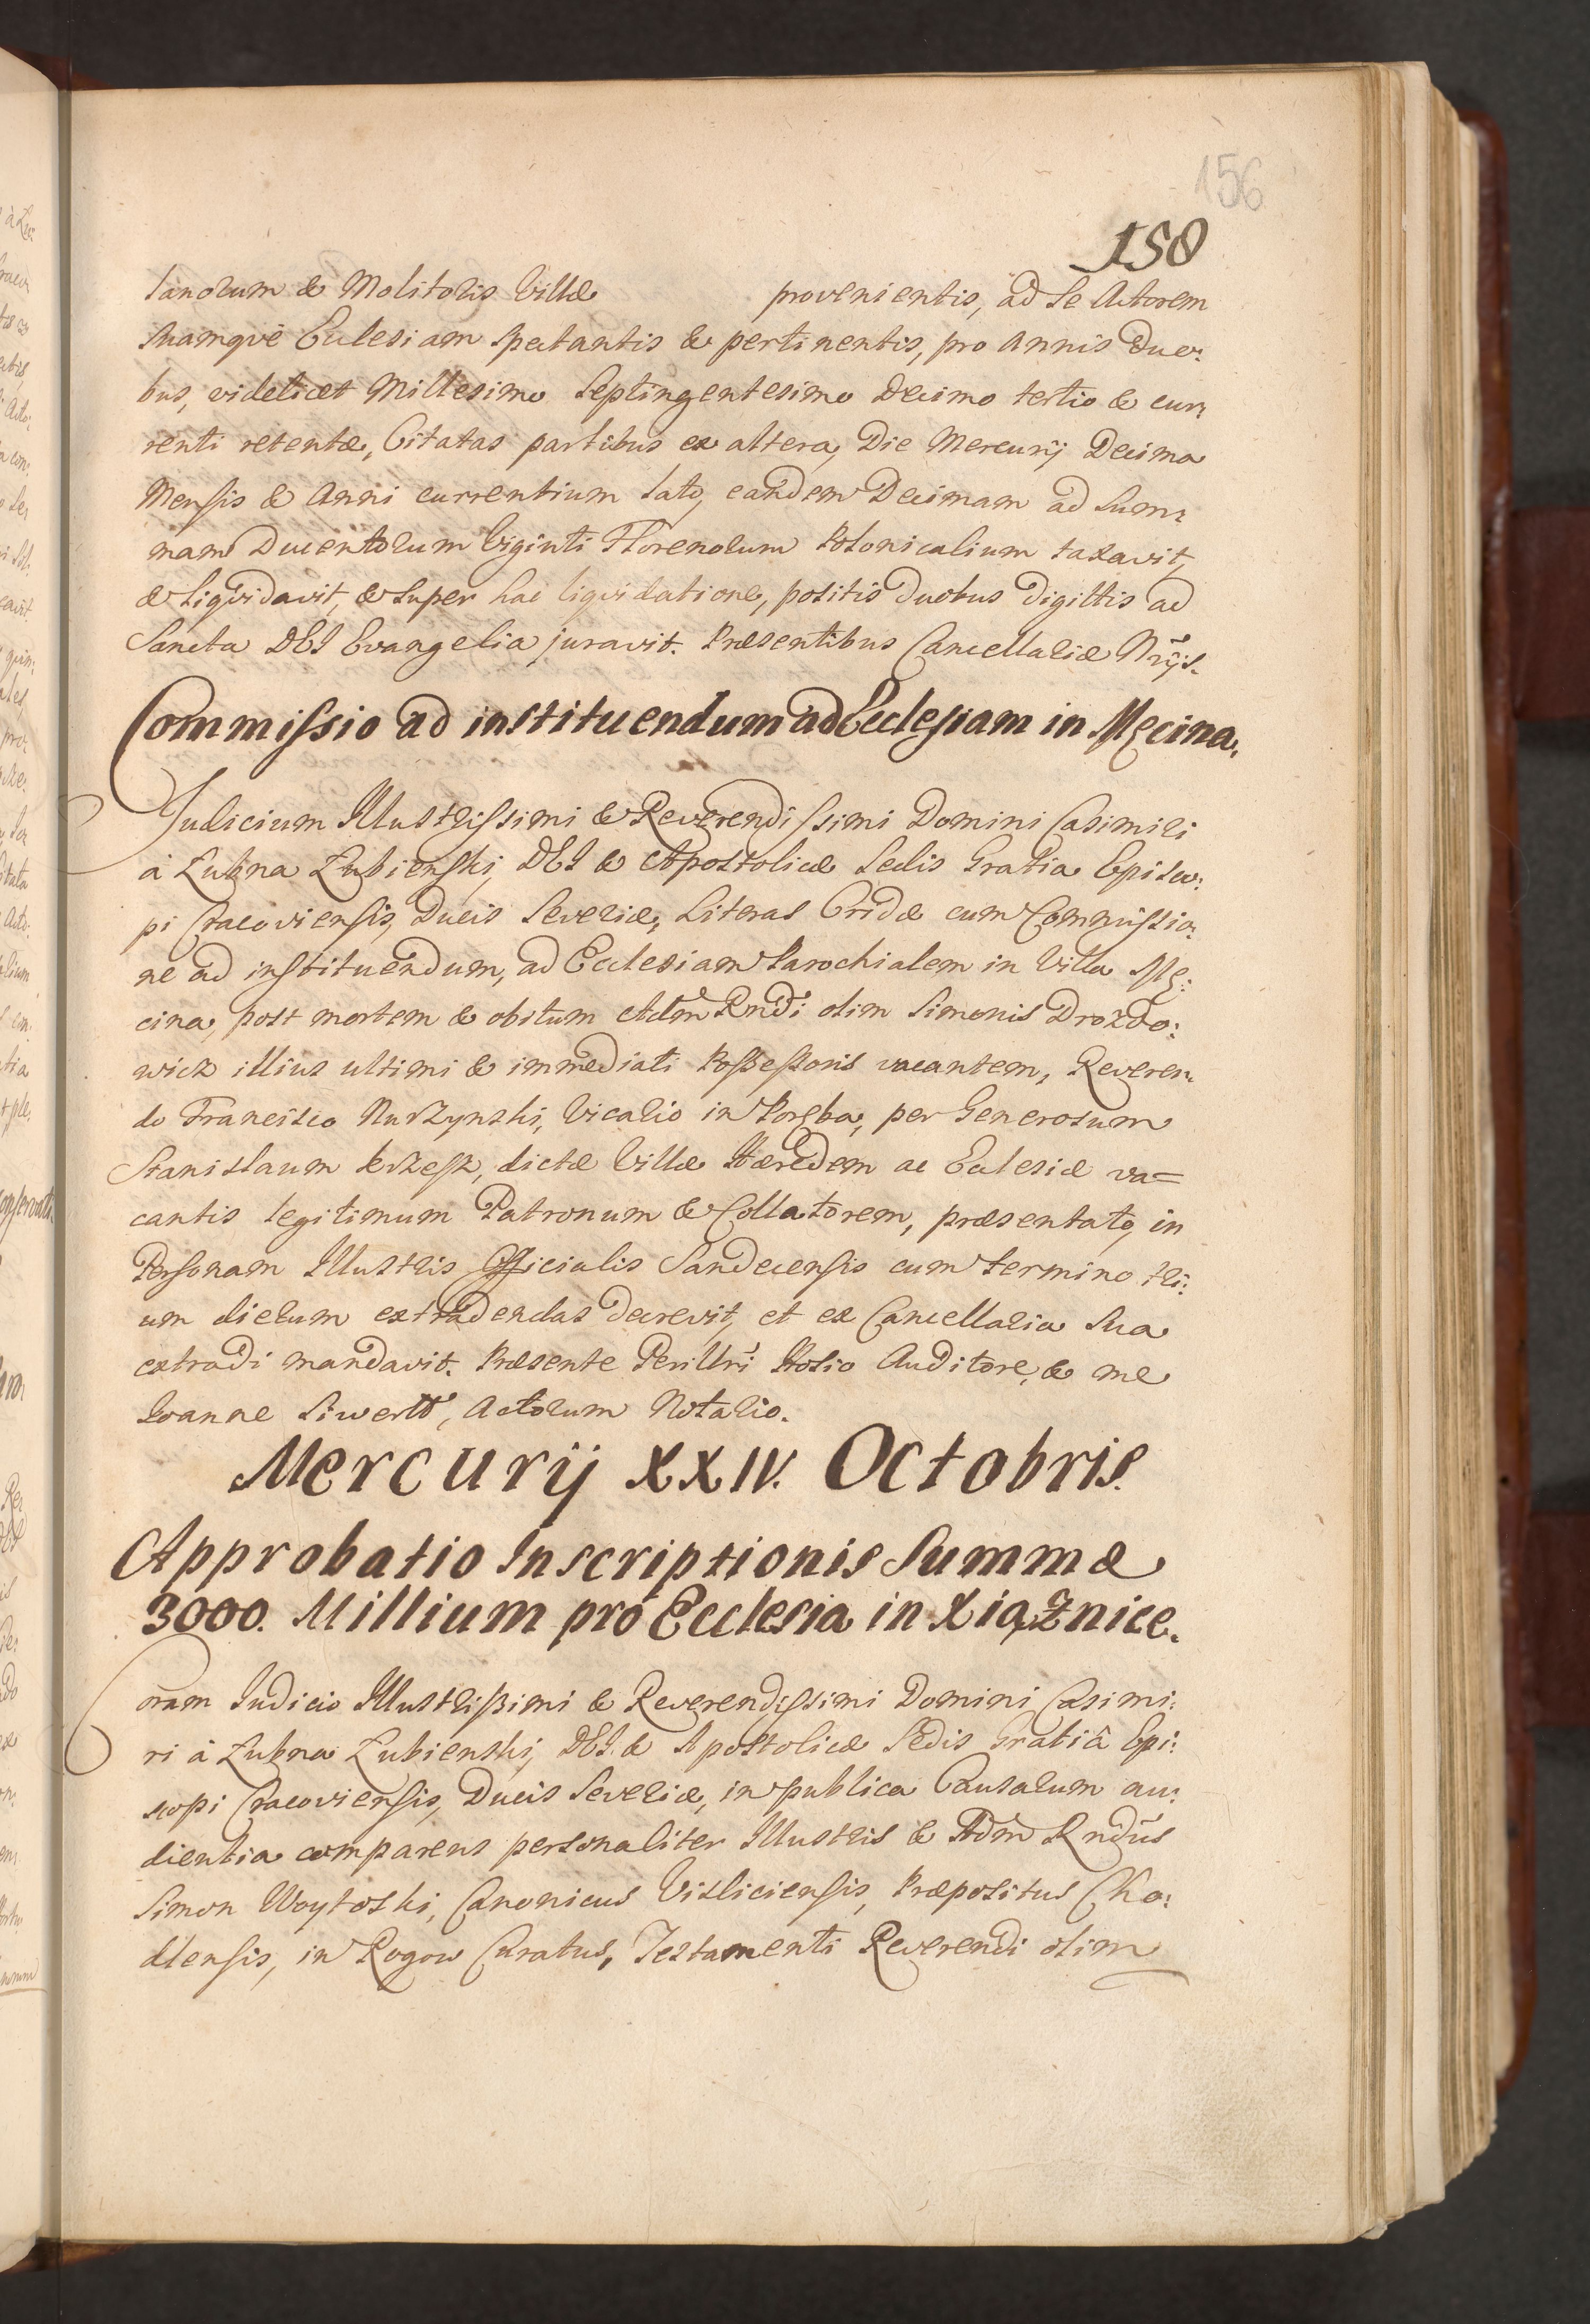 156
158
sanorum & Molitoris Villæ provenientis, ad se Actorem
suamqve Ecclesiam spectantis & pertinentis, pro Annis duo:
bus, videlicet Millesimo Septingentesimo Decimo tertio & cur:
renti retentæ, Citatas partibus ex altera, Die Mercurij Decima
Mensis & Anni currentium lato, eandem Decimam ad Sum:
mam Ducentorum Viginti Florenorum Polonicalium taxavit,
& liqvidavit, & super hac liqvidatione, positis duobus digittis ad
Sancta DEI Evangelia juravit. Præsentibus Cancellariæ Nrijs.
Commissio ad instituendum ad Ecclesiam in Męcina.
Judicium Illustrissimi & Reverendissimi Domini Casimiri
à Łubna Łubienski, DEI & Apostolicæ Sedis Gratia Episco:
pi Cracoviensis, Ducis Severiæ, Literas Cridæ cum Commissio:
ne ad instituendum, ad Ecclesiam Parochialem in Villa Mę:
cina, post mortem & obitum Adm Rndi olim Simonis Drozdo:
wicz illius ultimi & immediati Possessoris vacantem, Reveren:
do Francisco Nurzynski, Vicario in Poręba, per Generosum
Stanislaum Krzesz, dictæ Villæ Hæredem ac Ecclesiæ va=
cantis legitimum Patronum & Collatorem, præsentato, in
Personam Illustris Officialis Sandecensis cum termino tri:
um dierum extradendas decrevit, et ex Cancellaria sua
extradi mandavit. Præsente Perillri Hosio Auditore, & me
Joanne Siwertt, Actorum Notario.
Mercurij XXIV. Octobris.
Approbatio Inscriptionis Summæ
3000. Millium pro Ecclesia in Xiążnice.
Coram Judicio Illustrissimi & Reverendissimi Domini Casimi:
ri à Łubna Łubienski, DEI & Apostolicæ Sedis Gratiâ Epi:
scopi Cracoviensis, Ducis Severiæ, in publica Causarum au:
dientia comparens personaliter Illustris & Adm Rndus
Simon Woytoski, Canonicus Visliciensis, Præpositus Cho:
dlensis, in Rogow Curatus, Testamenti Reverendi olim